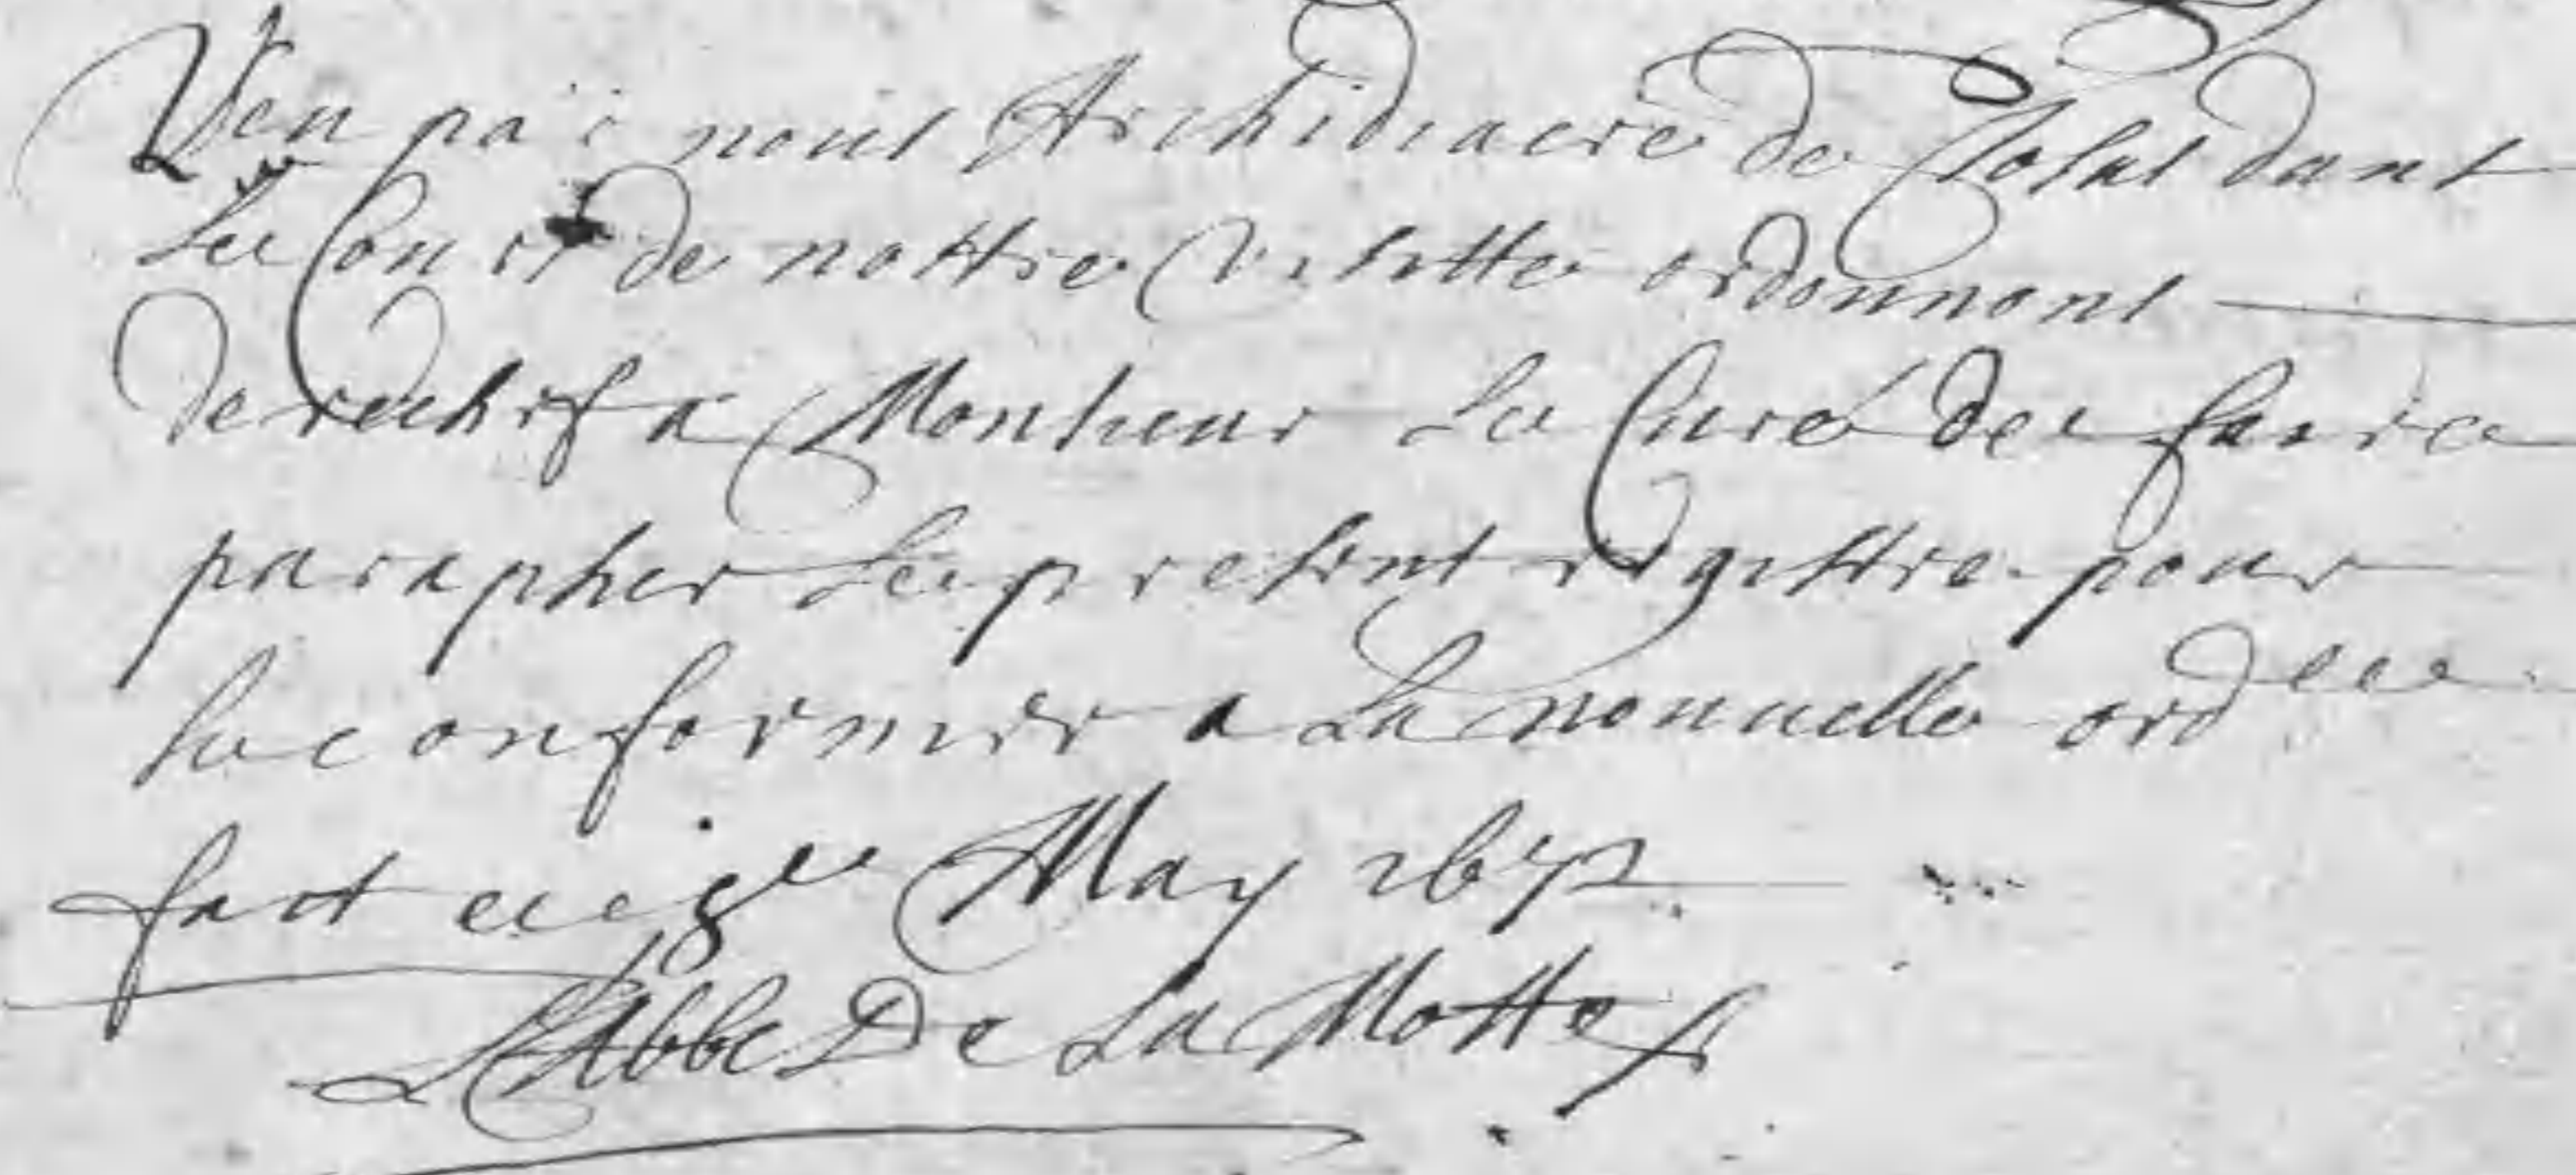 Veu par nous Archidiacre de Josas dans
Le Cours de nostre visitte ordonnons
derechef a Monsieur Le Curé de faire
parapher Le present registre pour
se conformer a La nouuelle ordce
fait ce 8e May 1672
L'Abbé De La Motte